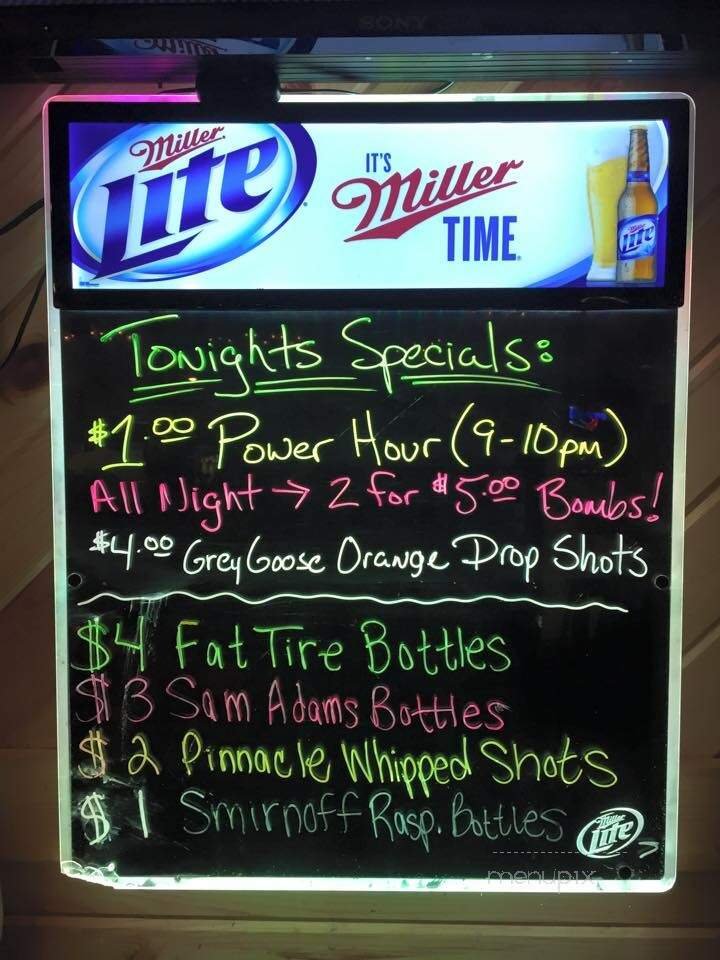 SONY
Miller
Miller
Lite
IT'S
Miller
TIME
Lite
Tonights Specials:
$1.00 Power Hour (9-10pm)
All Night → 2 for $5.00 Bombs!
$4.00 Grey Goose Orange Drop Shots
$4 Fat Tire Bottles
$3 Sam Adams Bottles
$2 Pinnacle Whipped Shots
$1 Smirnoff Rasp. Bottles
Miller
Lite
menupix